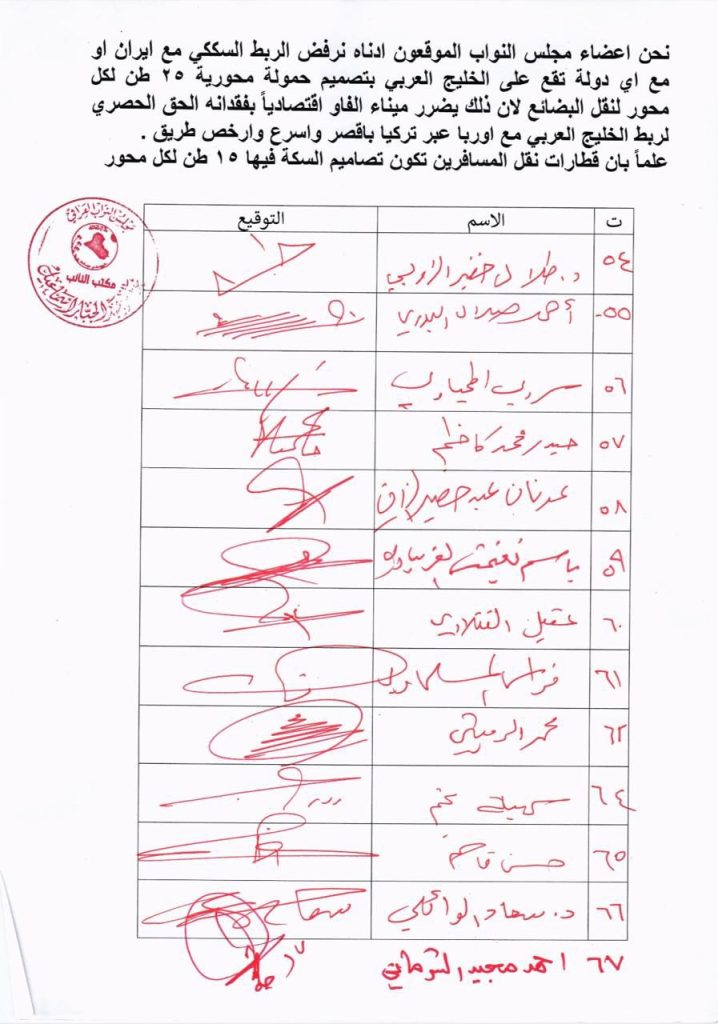 نحن اعضاء مجلس النواب الموقعون ادناه نرفض الربط السككي مع ايران او
مع اي دولة تقع على الخليج العربي بتصميم حمولة محورية ٢٥ طن لكل
محور لنقل البضائع لان ذلك يضرر ميناء الفاو اقتصادياً بفقدانه الحق الحصري
لربط الخليج العربي مع اوربا عبر تركيا باقصر واسرع وارخص طريق .
علماً بان قطارات نقل المسافرين تكون تصاميم السكة فيها ١٥ طن لكل محور
ت الاسم التوقيع
مجلس النواب العراقي
مكتب النائب
٥٤ د. طلال خضير الزوبعي
٥٥ أحمد البدري
٥٦
٥٧ حيدر محمد كاظم
٥٨ عدنان عبد خضير
٥٩ باسم نغيمش الغريباوي
٦٠ عقيل الفتلاوي
٦١ فراس المسلماوي
٦٢ محمد الرميثي
٦٤ سهيلة
٦٥ حسن
٦٦ د. سعاد الوائلي سعاد
٦٧ احمد مجيد